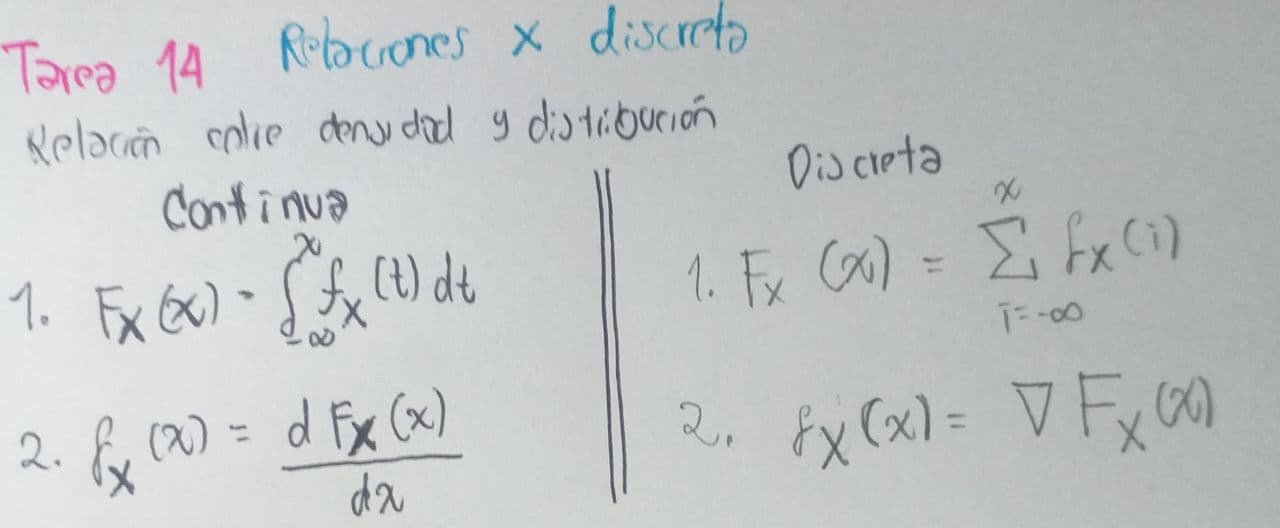 Tarea 14 Relaciones x discreto
Relación entre densidad y distribución
Continua
1. Fx(x) = ∫_{-∞}^{x} fx(t) dt
2. fx(x) = d Fx(x) / dx
Discreta
1. Fx(x) = Σ_{i=-∞}^{x} fx(i)
2. fx(x) = ∇ Fx(x)